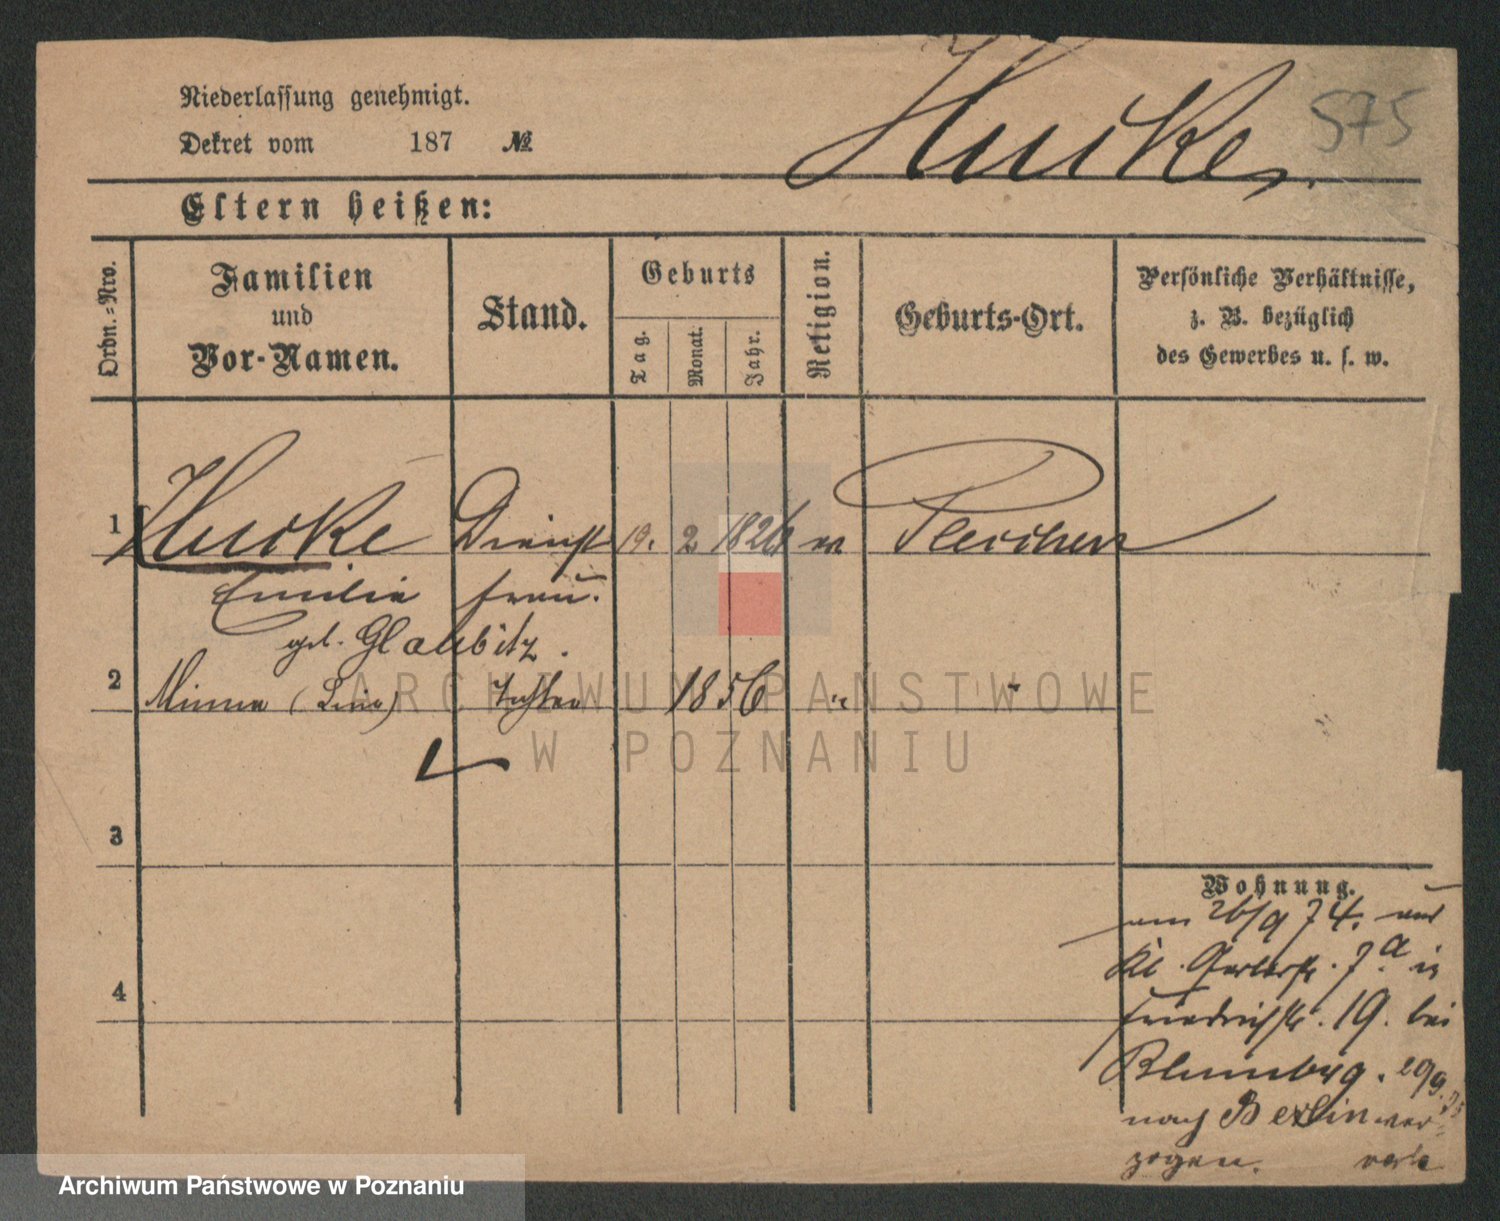 Niederlassung genehmigt.
Dekret vom 187 №
Hucke
575
Eltern heißen:
Ordn.-Nro.
Familien
und
Vor-Namen.
Stand.
Geburts
Tag.
Monat.
Jahr.
Religion.
Geburts-Ort.
Persönliche Verhältnisse,
z. B. bezüglich
des Gewerbes u. s. w.
1 Hucke Dienst 19. 2 1826 ev
Emilie frau.
geb. Glaubitz.
2 Minna ( ) Tochter 1856 "
3
4
Wohnung.
am 26/9 74. aus
Kl. Gerberstr. 7.a in
Friedrichstr. 19. bei
Blumberg. 29/9.75
nach Berlin ver-
zogen.
ARCHIWUM PAŃSTWOWE
W POZNANIU
Archiwum Państwowe w Poznaniu